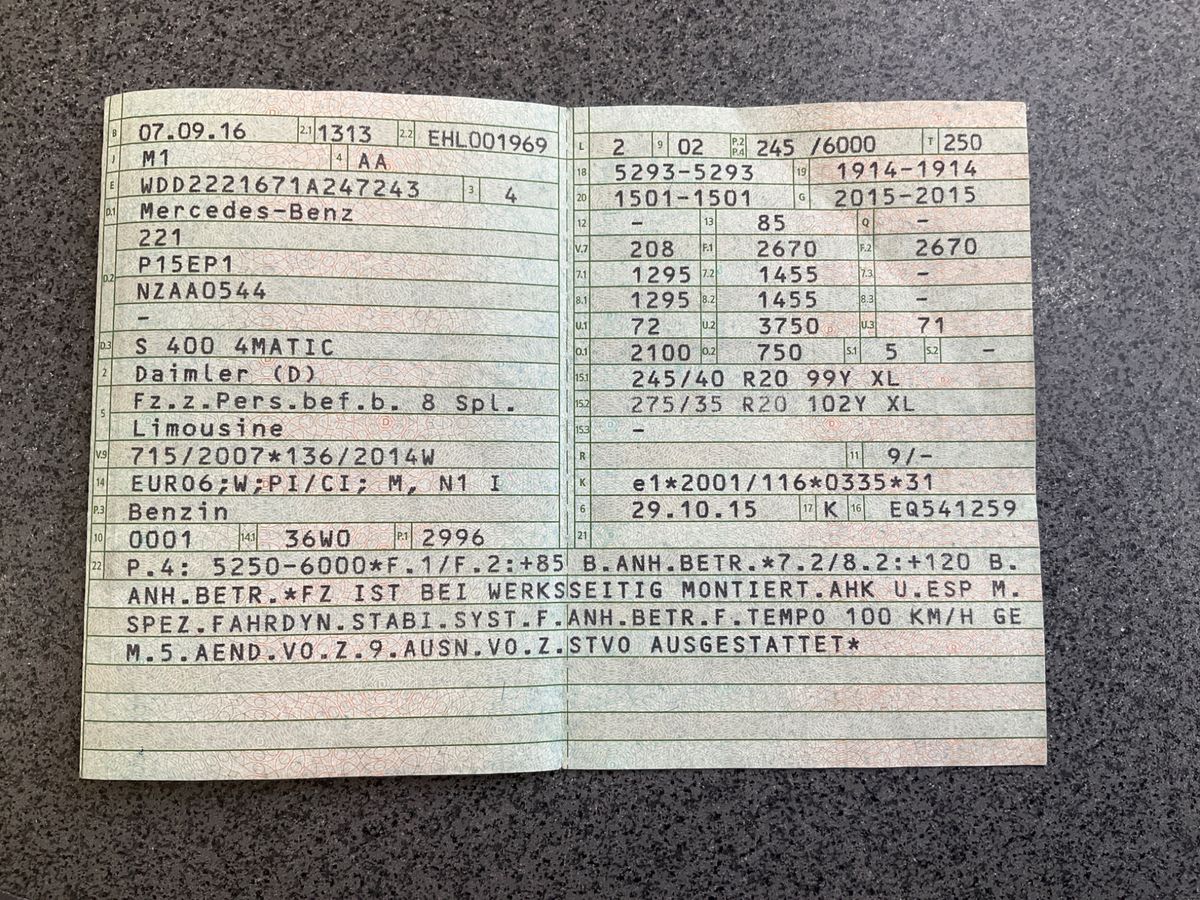 B 07.09.16 2.1 1313 2.2 EHL001969
J M1 4 AA
E WDD2221671A247243 3 4
D.1 Mercedes-Benz
221
D.2 P15EP1
NZAA0544
-
D.3 S 400 4MATIC
2 Daimler (D)
5 Fz.z.Pers.bef.b. 8 Spl.
Limousine
V.9 715/2007*136/2014W
14 EURO6;W;PI/CI; M, N1 I
P.3 Benzin
10 0001 14.1 36W0 P.1 2996
L 2 9 02 P.2 P.4 245 /6000 T 250
18 5293-5293 19 1914-1914
20 1501-1501 G 2015-2015
12 - 13 85 Q -
V.7 208 F.1 2670 F.2 2670
7.1 1295 7.2 1455 7.3 -
8.1 1295 8.2 1455 8.3 -
U.1 72 U.2 3750 U.3 71
O.1 2100 O.2 750 S.1 5 S.2 -
15.1 245/40 R20 99Y XL
15.2 275/35 R20 102Y XL
15.3 -
R 11 9/-
K e1*2001/116*0335*31
6 29.10.15 17 K 16 EQ541259
21
22 P.4: 5250-6000*F.1/F.2:+85 B.ANH.BETR.*7.2/8.2:+120 B.
ANH.BETR.*FZ IST BEI WERKSSEITIG MONTIERT.AHK U.ESP M.
SPEZ.FAHRDYN.STABI.SYST.F.ANH.BETR.F.TEMPO 100 KM/H GE
M.5.AEND.VO.Z.9.AUSN.VO.Z.STVO AUSGESTATTET*